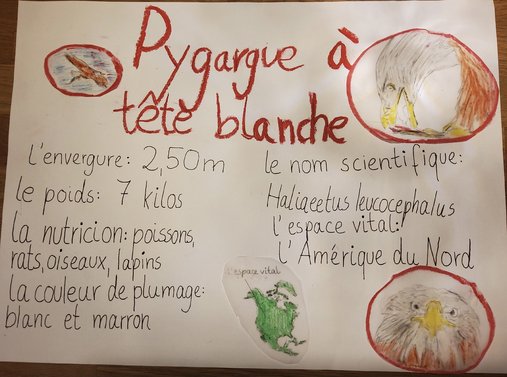 Pygargue à
tête blanche
l'envergure: 2,50m
le poids: 7 kilos
la nutricion: poissons,
rats, oiseaux, lapins
la couleur de plumage:
blanc et marron
le nom scientifique:
Haliaeetus leucocephalus
l'espace vital:
l'Amérique du Nord
l'espace vital